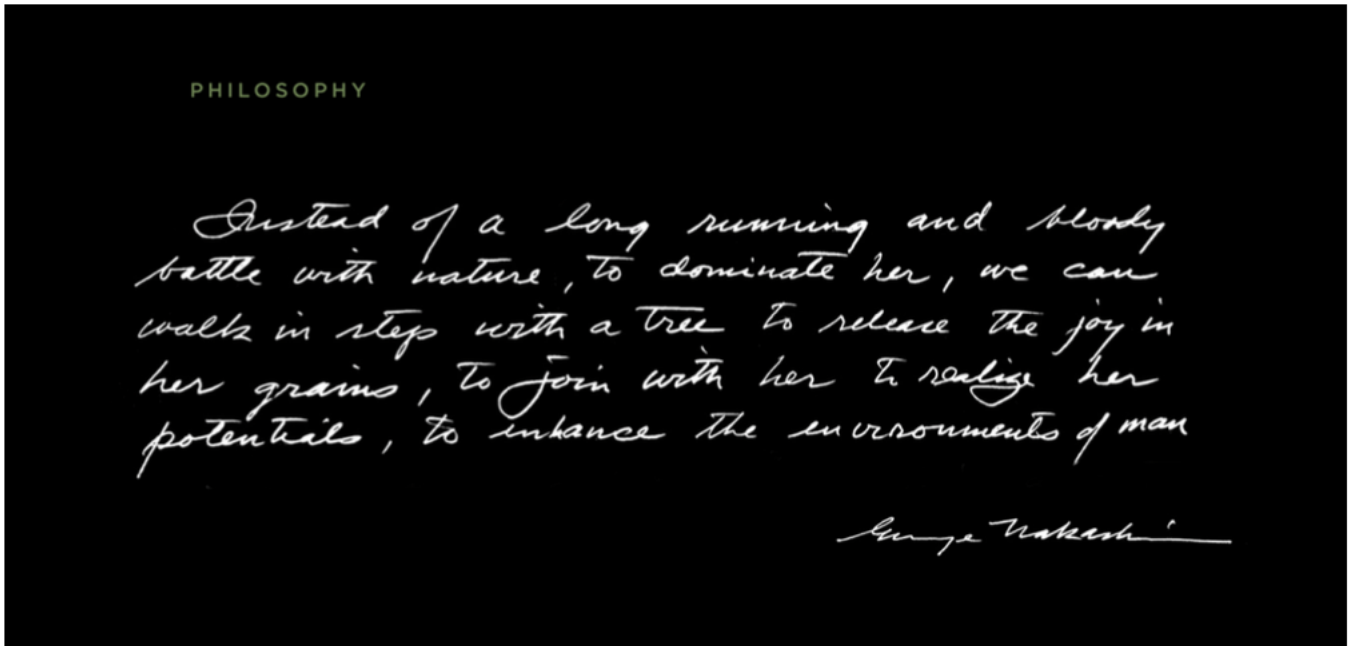 PHILOSOPHY
Instead of a long running and bloody
battle with nature, to dominate her, we can
walk in step with a tree to release the joy in
her grains, to join with her to realize her
potentials, to enhance the environments of man
George Nakashima